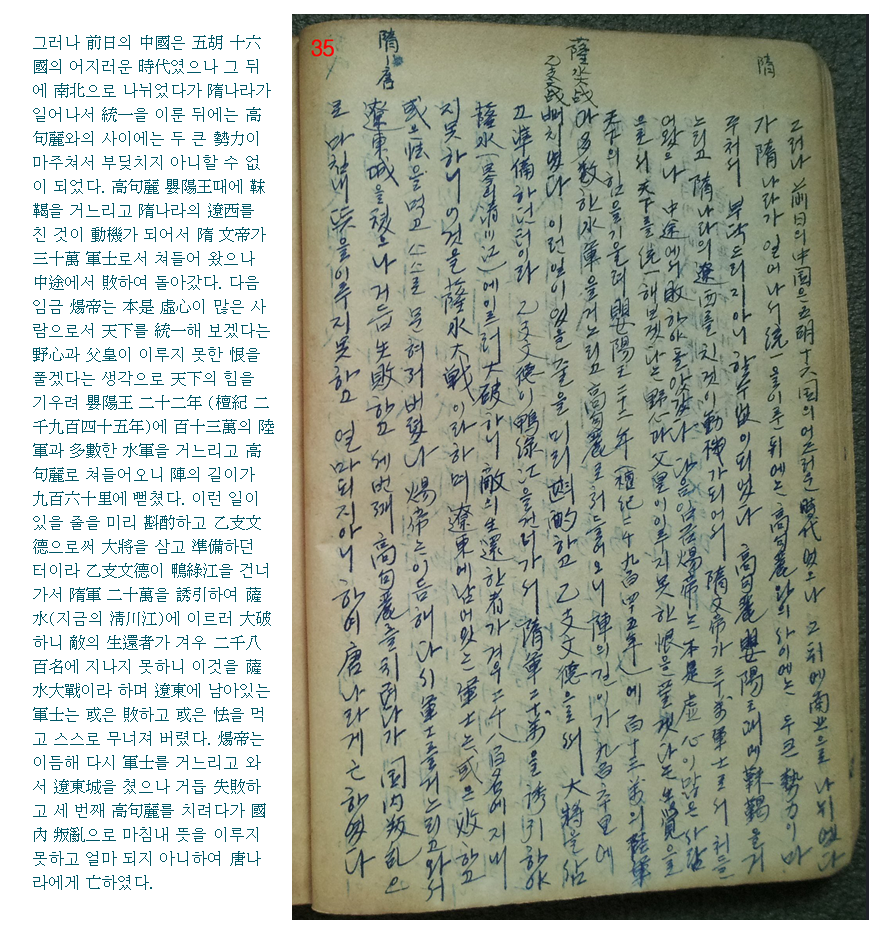 그러나 前日의 中國은 五胡 十六
國의 어지러운 時代였으나 그 뒤
에 南北으로 나뉘었다가 隋나라가
일어나서 統一을 이룬 뒤에는 高
句麗와의 사이에는 두 큰 勢力이
마주쳐서 부딪치지 아니할 수 없
이 되었다. 高句麗 嬰陽王때에 靺
鞨을 거느리고 隋나라의 遼西를
친 것이 動機가 되어서 隋 文帝가
三十萬 軍士로서 쳐들어 왔으나
中途에서 敗하여 돌아갔다. 다음
임금 煬帝는 本是 虛心이 많은 사
람으로서 天下를 統一해 보겠다는
野心과 父皇이 이루지 못한 恨을
풀겠다는 생각으로 天下의 힘을
기우려 嬰陽王 二十二年 (檀紀 二
千九百四十五年)에 百十三萬의 陸
軍과 多數한 水軍을 거느리고 高
句麗로 쳐들어오니 陣의 길이가
九百六十里에 뻗쳤다. 이런 일이
있을 줄을 미리 斟酌하고 乙支文
德으로써 大將을 삼고 準備하던
터이라 乙支文德이 鴨綠江을 건너
가서 隋軍 二十萬을 誘引하여 薩
水(지금의 淸川江)에 이르러 大破
하니 敵의 生還者가 겨우 二千八
百名에 지나지 못하니 이것을 薩
水大戰이라 하며 遼東에 남아있는
軍士는 或은 敗하고 或은 怯을 먹
고 스스로 무너져 버렸다. 煬帝는
이듬해 다시 軍士를 거느리고 와
서 遼東城을 쳤으나 거듭 失敗하
고 세 번째 高句麗를 치려다가 國
內 叛亂으로 마침내 뜻을 이루지
못하고 얼마 되지 아니하여 唐나
라에게 亡하였다.
35
隋
그러나 前日의 中国은 五胡 十六国의 어즈러운 時代였으나 그 뒤에 南北으로 나뉘였다
가 隋나라가 일어나서 統一을 이룬 뒤에는 高句麗와의 사이에는 두 큰 勢力이 마
주처서 부닥드리지 아니할 수 없이 되었다 高句麗 嬰陽王때에 靺鞨을 거
느리고 隋나라의 遼西를 친 것이 動機가 되어서 隋文帝가 三十萬 軍士로서 처들
어왔으나 中途에서 敗하야 돌아갔다 다음 임금 煬帝는 本是 虛心이 많은 사람
으로서 天下를 統一해보겠다는 野心과 父皇이 이르지 못한 恨을 풀겠다는 生覺으로
天下의 힘을 기울려 嬰陽王 二十二年 (檀紀 二千九百四十五年)에 百十三萬의 陸軍
薩水大战
과 多數한 水軍을 거느리고 高句麗로 처드러오니 陣의 길이가 九百六十里에
乙支文德
뻐치였다 이런 일이 있을 줄을 미리 斟酌하고 乙支文德을로써 大將을 삼
고 準備하던 터이라 乙支文德이 鴨綠江을 건너가서 隋軍 二十萬을 誘引하야
薩水 (지금의 淸川江)에 이르러 大破하니 敵의 生還한 者가 겨우 二千八百名에 지내
지 못하니 이것을 薩水大戰이라 하며 遼東에 남어있는 軍士는 或은 敗하고
或은 怯을 먹고 스스로 무너저 버렸다 煬帝는 이듬해 다시 軍士를 거느리고 와서
隋-唐
遼東城을 쳤으나 거듭 失敗하고 세번째 高句麗를 치려다가 国内 叛乱으
로 마침내 뜻을 이루지 못하고 얼마 되지 아니하여 唐나라게 亡하였다